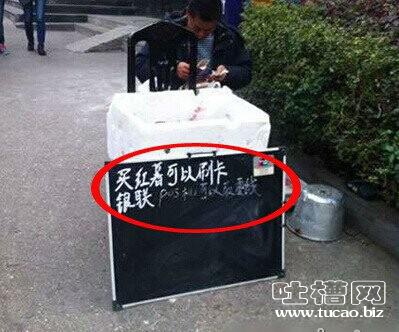 买红薯可以刷卡
银联 pos机可以取零钱
吐槽网
www.tucao.biz